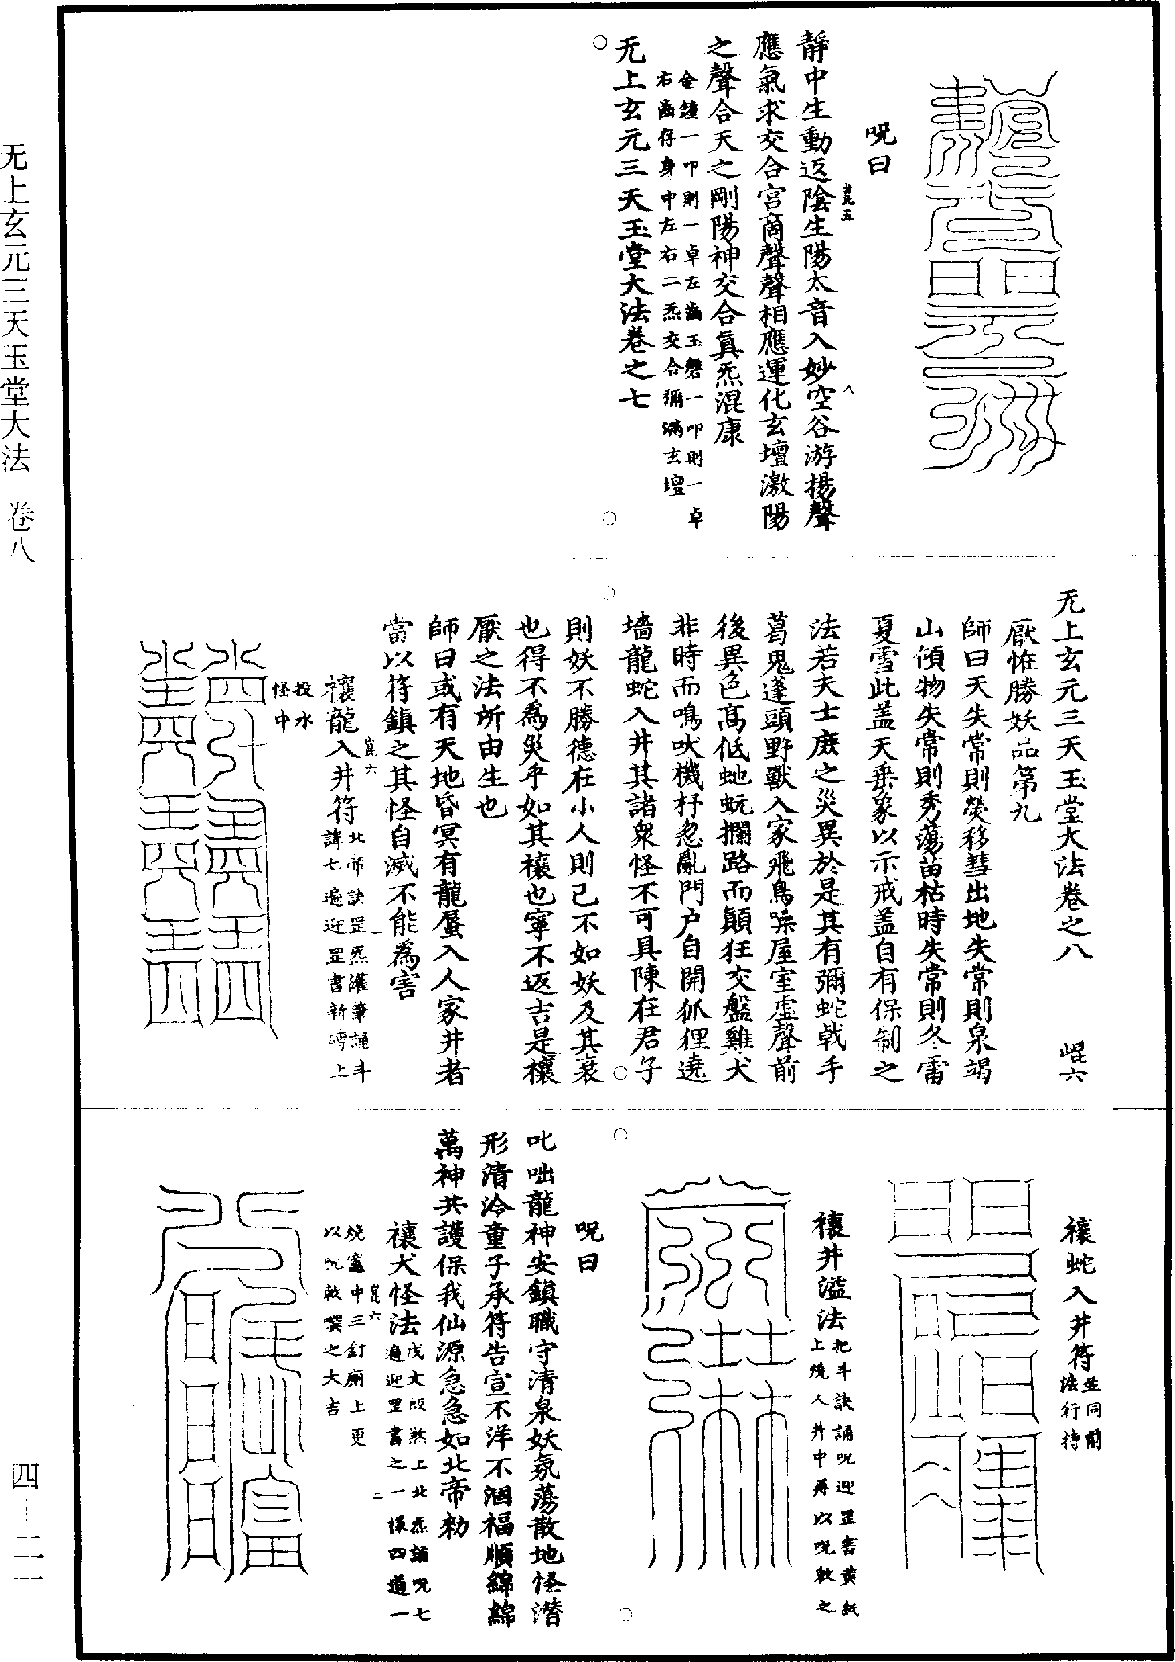 呪曰
靜中生動返陰生陽太音入妙空谷游揚聲
應氣求交合宮商聲聲相應運化玄壇激陽
之聲合天之剛陽神交合真炁混康
金鐘一叩則一卓左齒玉磬一叩則一卓
右齒存身中左右二炁交合彌滿玄壇
无上玄元三天玉堂大法卷之七
无上玄元三天玉堂大法卷之八
崐六
厭怪勝妖品第九
師曰天失常則熒移彗出地失常則泉竭
山傾物失常則秀蕩苗枯時失常則冬雷
夏雪此蓋天垂象以示戒蓋自有保制之
法若夫士庶之災異於是其有彌蛇戟手
葛鬼蓬頭野獸入家飛鳥噪屋室虛聲前
後異色高低虵蚖攔路而顛狂交盤雞犬
非時而鳴吠機杼忽亂門戶自開狐狸遶
墻龍蛇入井其諸衆怪不可具陳在君子
則妖不勝德在小人則己不如妖及其衰
也得不為災乎如其禳也寧不返吉是禳
厭之法所由生也
師曰或有天地昏冥有龍蜃入人家井者
當以符鎮之其怪自滅不能為害
禳龍入井符
北帝訣罡炁灌筆誦斗
諱七遍迎罡書新磚上
投水
怪中
禳蛇入井符
並同前
法行持
禳井溢法
把斗訣誦呪迎罡書黃紙
上燒入井中再以呪敕之
呪曰
叱咄龍神安鎮職守清泉妖氛蕩散地怪潛
形清冷童子承符告宣不洋不涸福順綿綿
萬神共護保我仙源急急如北帝勑
禳犬怪法
戊文股煞上北炁誦呪七
遍迎罡書之一樣四道一
燒竈中三釘廟上更
以呪敕噀之大吉
无上玄元三天玉堂大法　卷八
四—二一